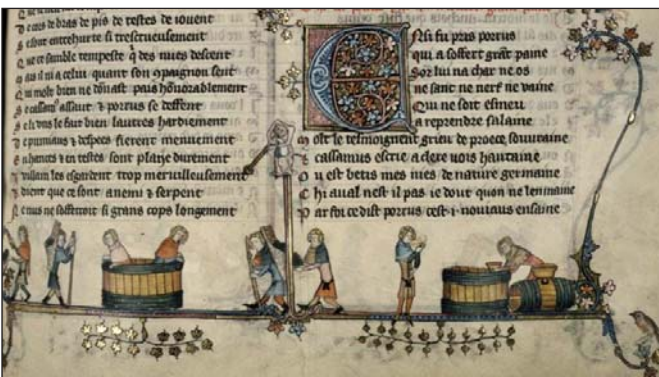 de bras de pis de testes de iouent
entrehurte si trescrueusement
ne ce samble tempeste q des nues descent
a celui quant son sent
ui molt bien ne donast pais honorablement
E assaut & porrus se deffent
S e li vns le fait bien lautres hardiement
D e pumiaus & despees fierent menuement
E n hances & en testes sont plaie durement
les esgardent trop merueilleusement
dient que ce sont anemi & serpent
N e nus ne soffreroit si grans cops longement
E Nsi fu pris porrus
qui a soffert grāt paine
Sor lui na char ne os
ne sanc ne nerf ne vaine
Qui ne soit esmeu
a reprendre salaine
M olt le tesmoignent grieu de proece souuraine
E cassamus escrie a clere vois hautaine
O u est betis mes nies de nature germaine
C hi aual nest il pas ie dout quon ne lenmaine
P ar foi ce dist porrus cest .i. nouiaus ensaine